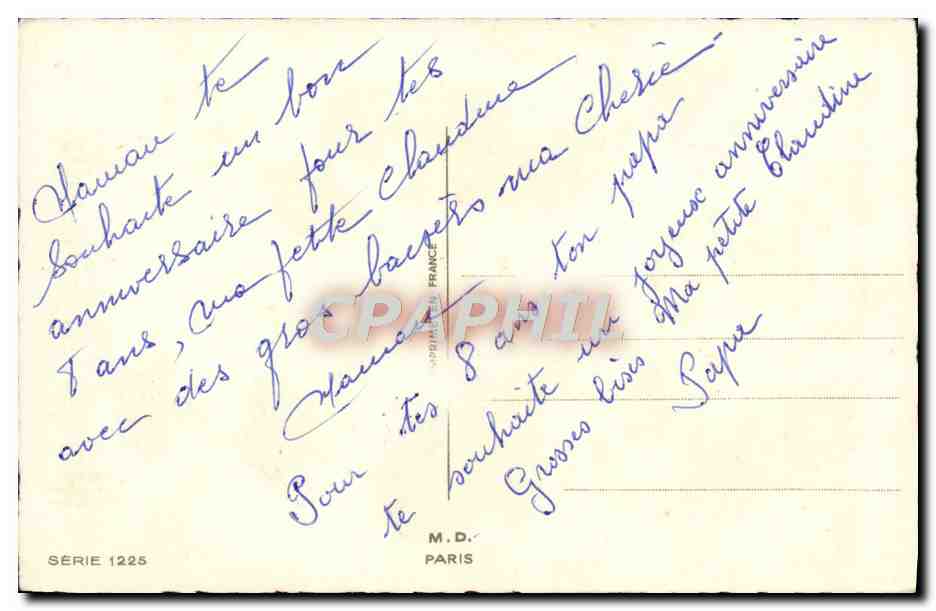 Maman te
souhaite un bon
anniversaire pour tes
8 ans, ma petite Claudine
avec des gros baisers ma Cherie
Maman
Pour tes 8 ans ton papa
te souhaite un joyeux anniversaire
Grosses bises Ma petite Claudine
Papa
IMPRIMÉ EN FRANCE
CPAPHIL
M.D.
PARIS
SÉRIE 1225